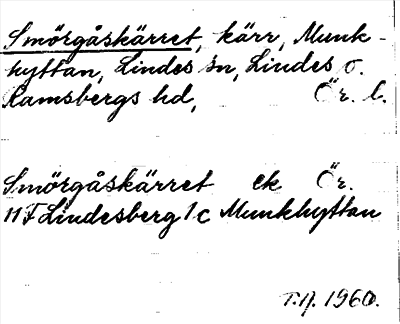 Smörgåskärret, kärr, Munk-
hyttan, Lindes sn, Lindes o.
Ramsbergs hd, Ör. l.
Smörgåskärret ek Ör.
11 F Lindesberg 1 c Munkhyttan
T.A. 1960.